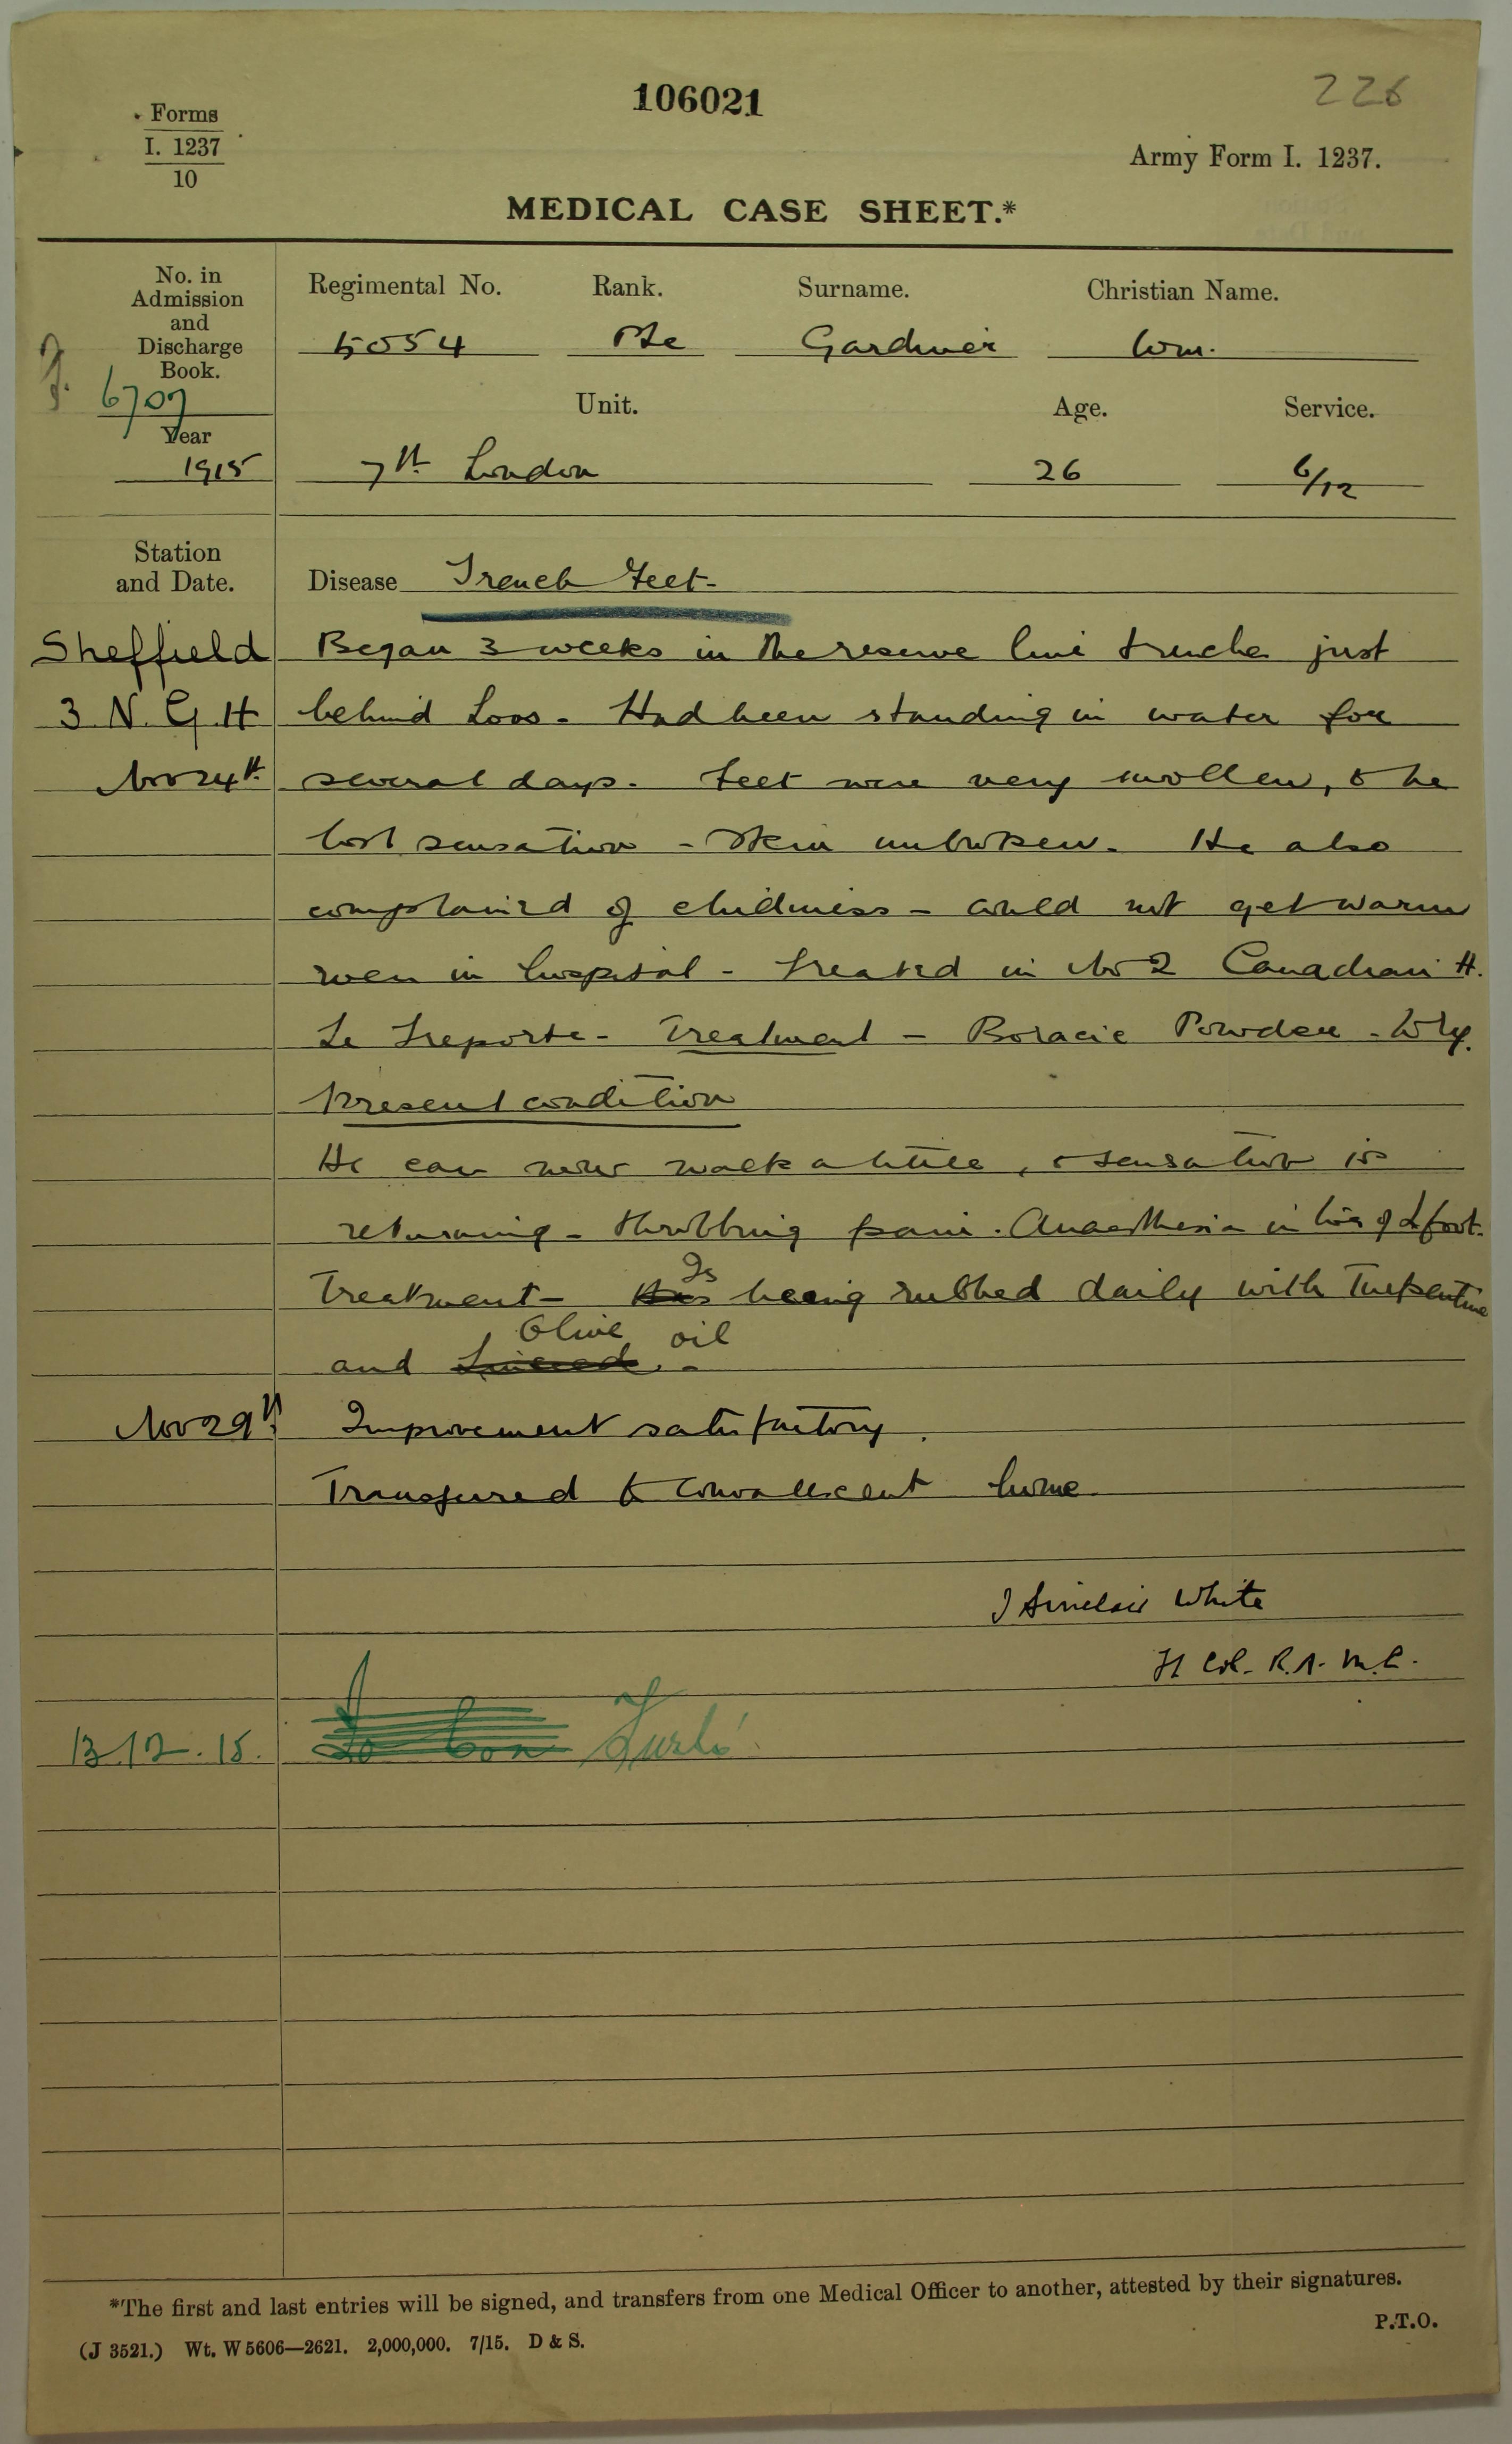 106021
226
Forms
I. 1237
10
Army Form I. 1237.
MEDICAL CASE SHEET.*
No. in
Admission
and
Discharge
Book.
6707
Year
1915
Regimental No. Rank. Surname. Christian Name.
5054 Pte Gardiner Wm.
Unit. Age. Service.
7th London 26 6/12
Station
and Date.
Disease Trench Feet-
Sheffield
3. N. G. H
Nov 24th
Began 3 weeks in the reserve line trenches just
behind Loos - Had been standing in water for
several days. Feet were very swollen, & he
lost sensation - Skin unbroken. He also
complained of chilliness - could not get warm
even in hospital - Treated in No 2 Canadian H.
Le Treporte - Treatment - Boracic Powder -
Present condition
He can now walk a little, & sensation is
returning - throbbing pain. Anaesthesia in toes of L foot.
Treatment - Is being rubbed daily with Turpentine
and Linseed Olive oil -
Nov 29th Improvement satisfactory.
Transferred to Convalescent home
J Sinclair White
Lt Col. R.A.M.C.
13.12.15. To Con Furlo'
*The first and last entries will be signed, and transfers from one Medical Officer to another, attested by their signatures.
P.T.O.
(J 3521.) Wt. W 5606—2621. 2,000,000. 7/15. D & S.